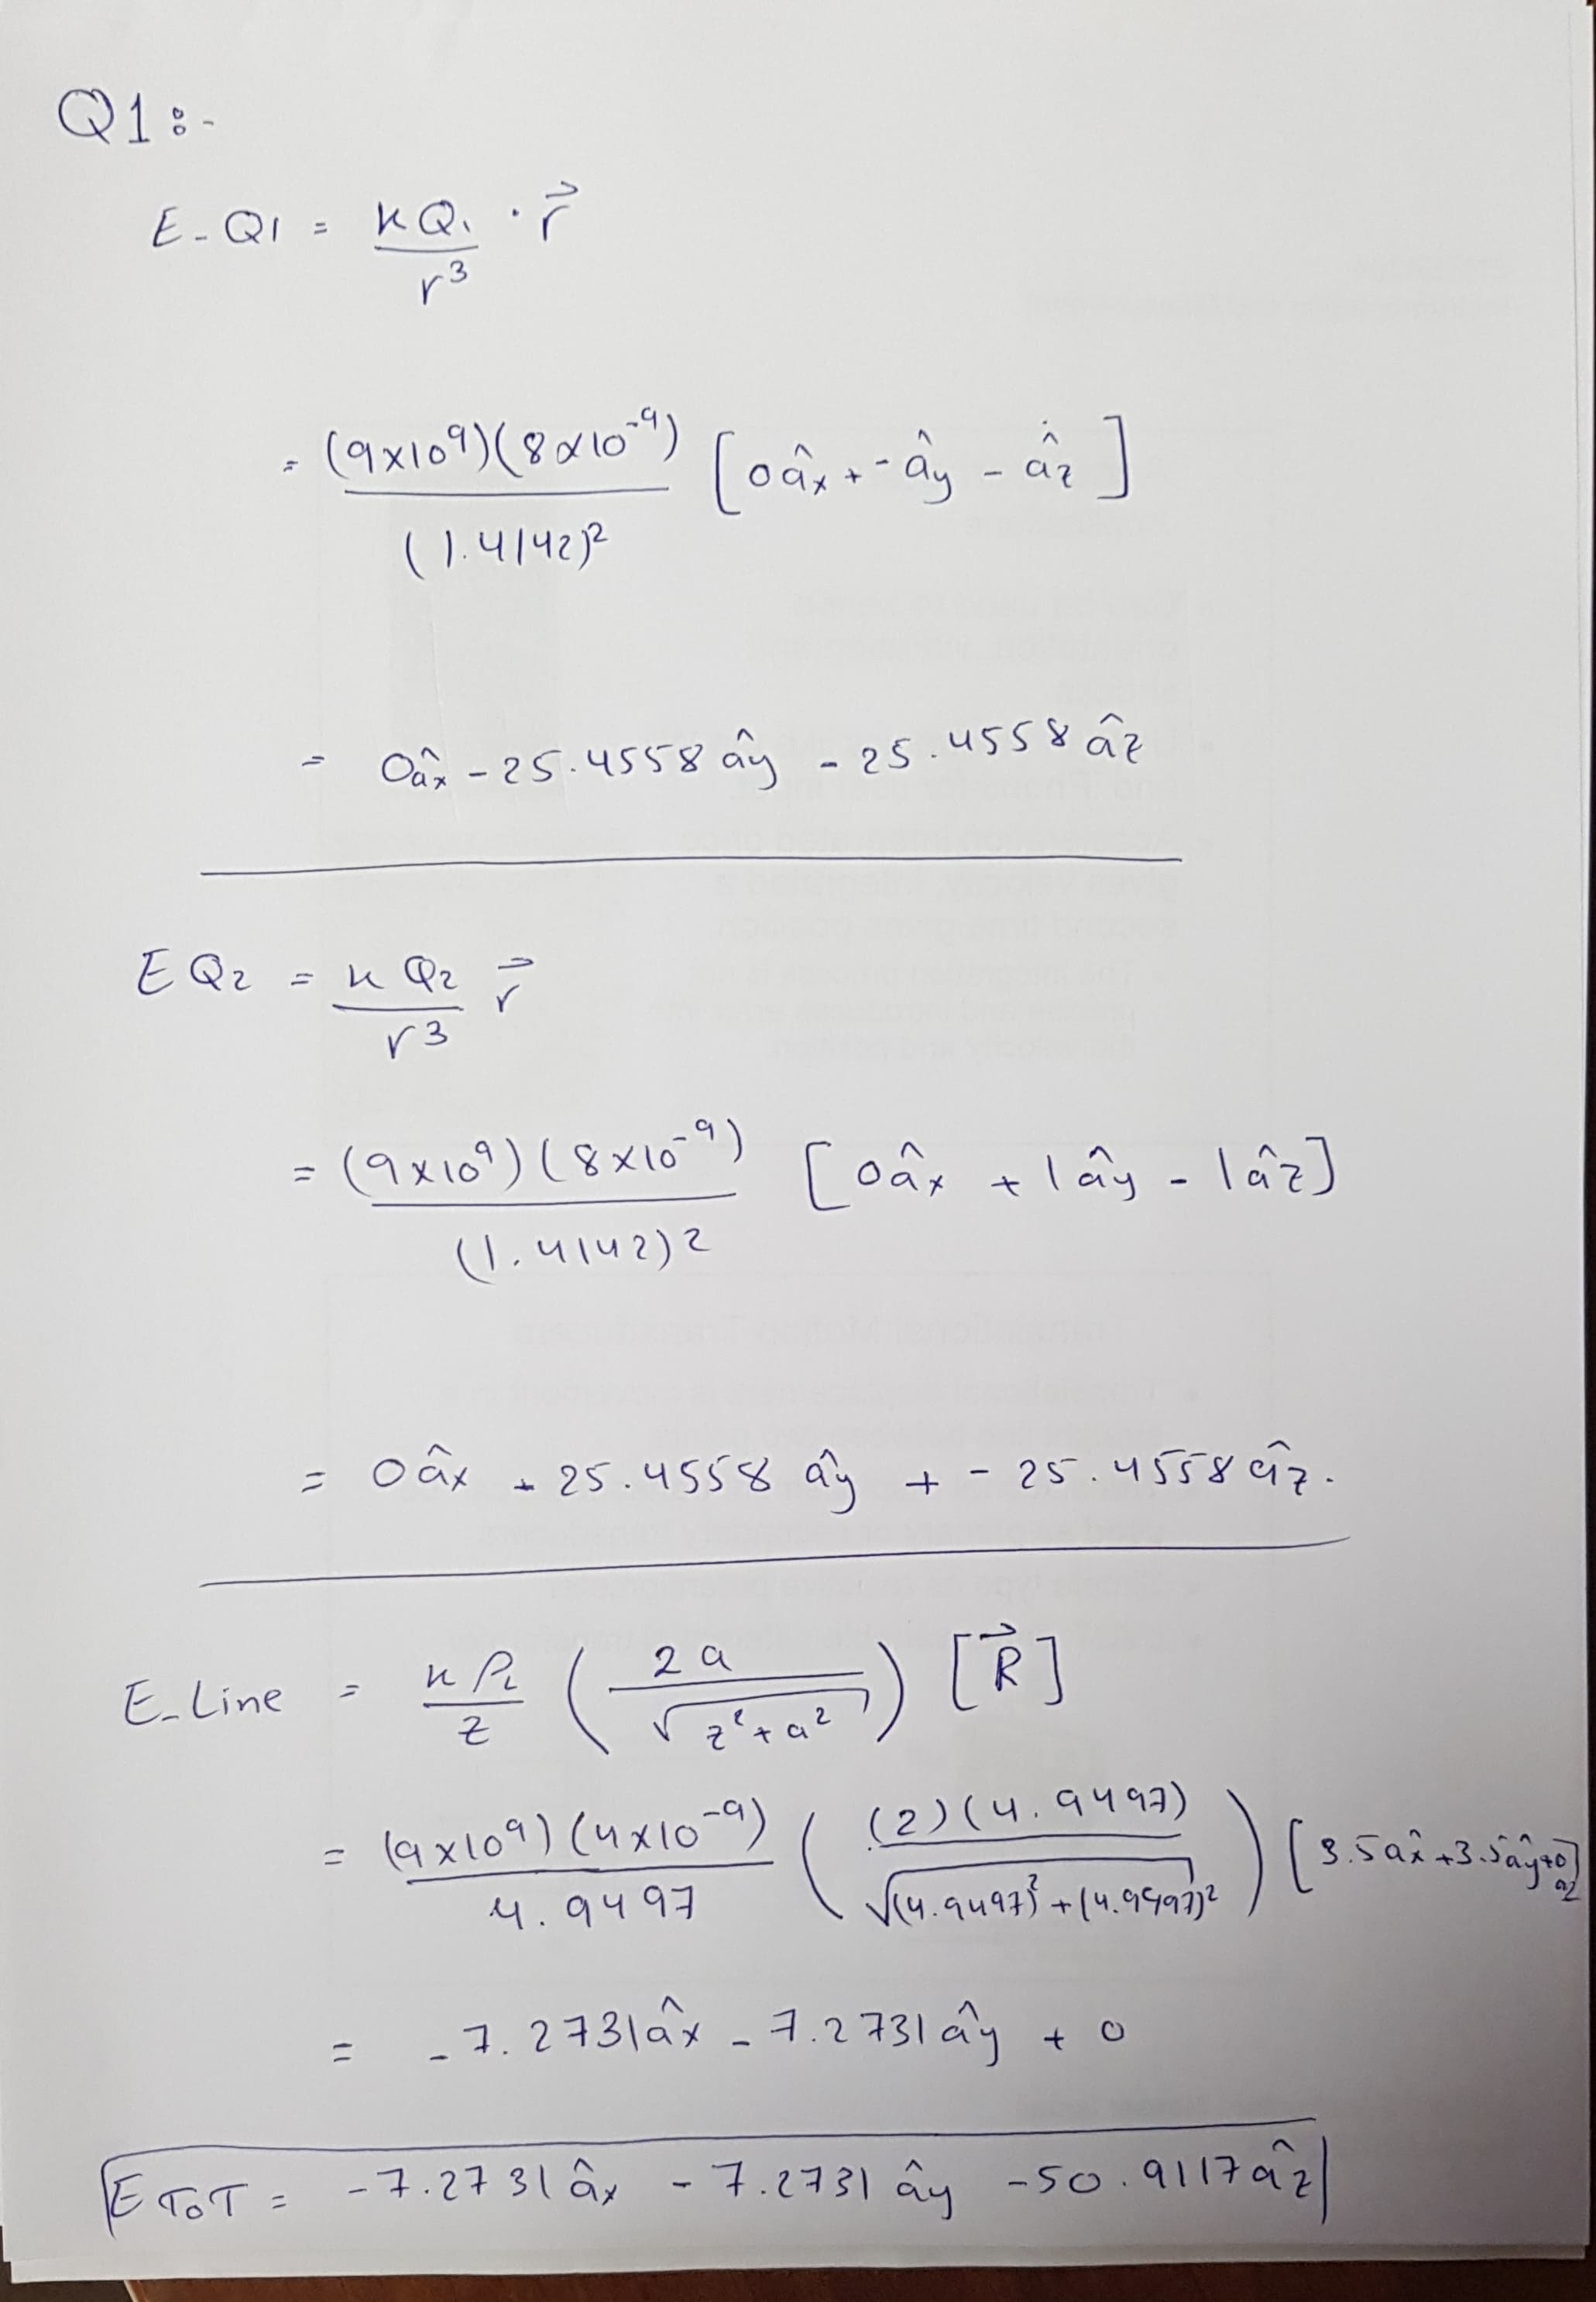 Q1:-
E-Q1 = KQ1/r³ · r⃗
= (9x10⁹)(8x10⁻⁹)/(1.4142)² [0âx + -ây - âz]
= 0âx - 25.4558 ây - 25.4558 âz
EQ2 = K Q2/r³ r⃗
= (9x10⁹)(8x10⁻⁹)/(1.4142)2 [0âx + 1ây - 1âz]
= 0âx + 25.4558 ây + - 25.4558 âz.
E-Line = K ρL/z (2a/√(z²+a²)) [R⃗]
= (9x10⁹)(4x10⁻⁹)/4.9497 ((2)(4.9497)/√((4.9497)²+(4.9497)²)) [3.5âx+3.5ây+0az]
= -7.2731âx - 7.2731ây + 0
ETOT = -7.2731âx - 7.2731ây - 50.9117âz